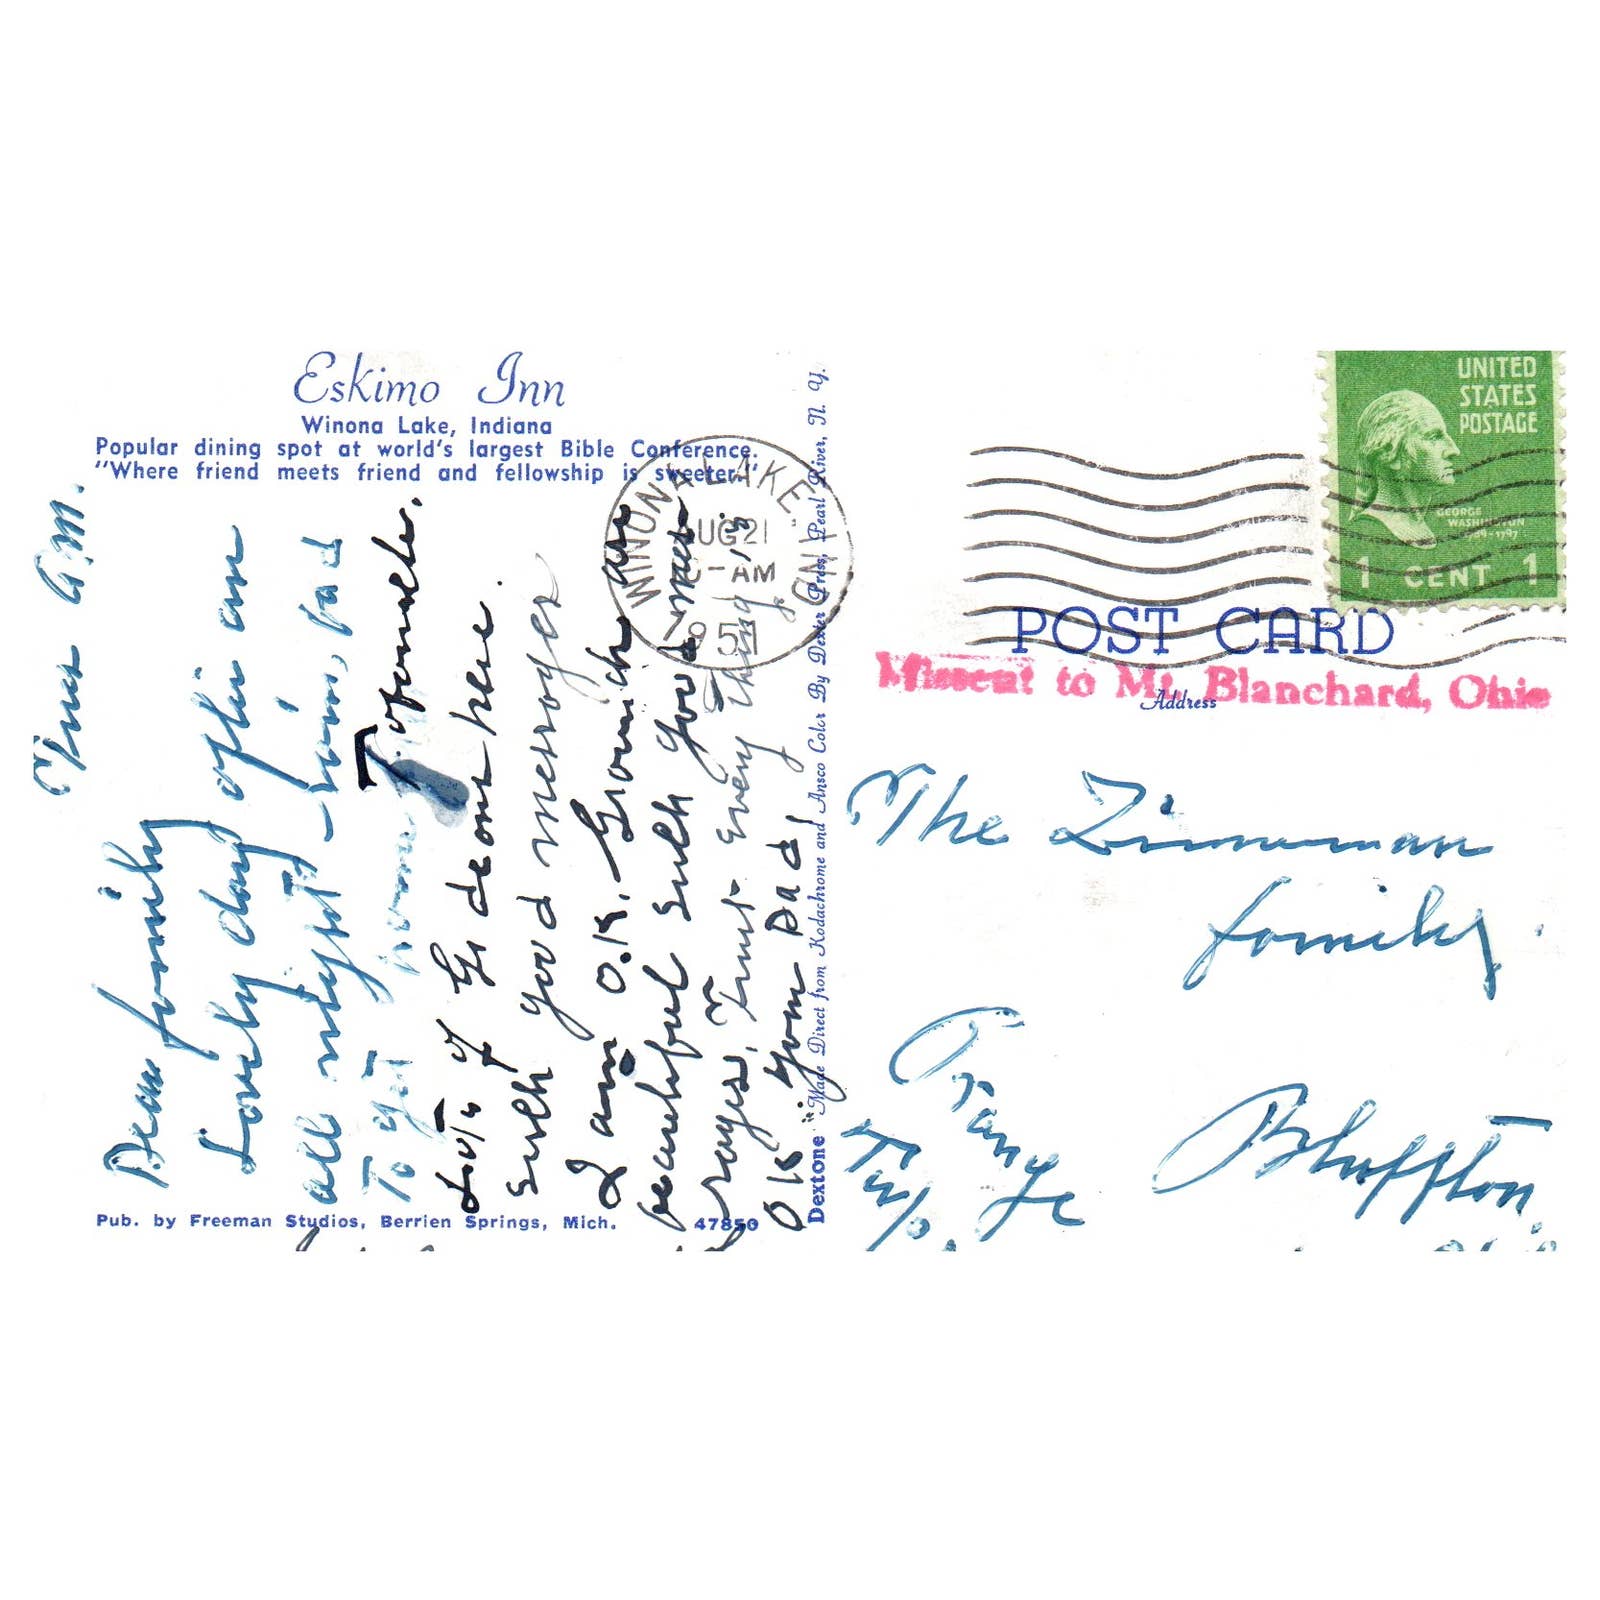 Eskimo Inn
Winona Lake, Indiana
Popular dining spot at world's largest Bible Conference.
"Where friend meets friend and fellowship is sweeter."
Tues A.M.
Dear family
Lovely day after an
all night rain, had
to get home
Lots of Gideons here.
Such good messages
I am O.K. Grounds are
beautiful such good mes-
sages. Trust every thing is
O K Your Dad
Pub. by Freeman Studios, Berrien Springs, Mich.
47850
"Dextone" Made Direct from Kodachrome and Ansco Color By Dexter Press, Pearl River, N. Y.
WINONA LAKE IND.
AUG 21
AM
1951
UNITED
STATES
POSTAGE
GEORGE
WASHINGTON
1789-1797
1 CENT 1
POST CARD
Missent to Mt. Blanchard, Ohio
Address
The Zimmerman
family
Orange
Twp.
Bluffton